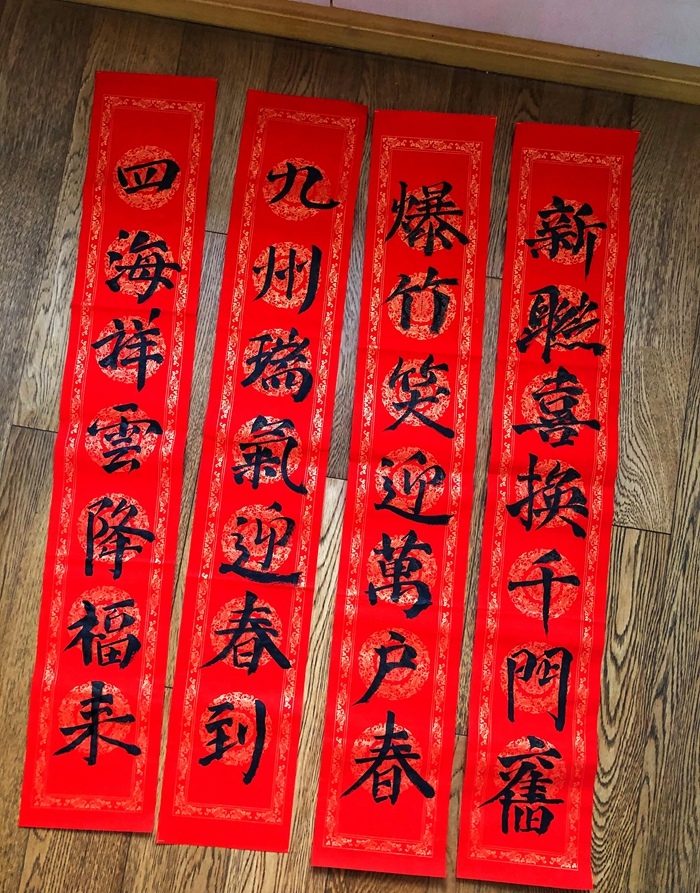 新聯喜換千門舊
爆竹笑迎萬户春
九州瑞氣迎春到
四海祥雲降福来